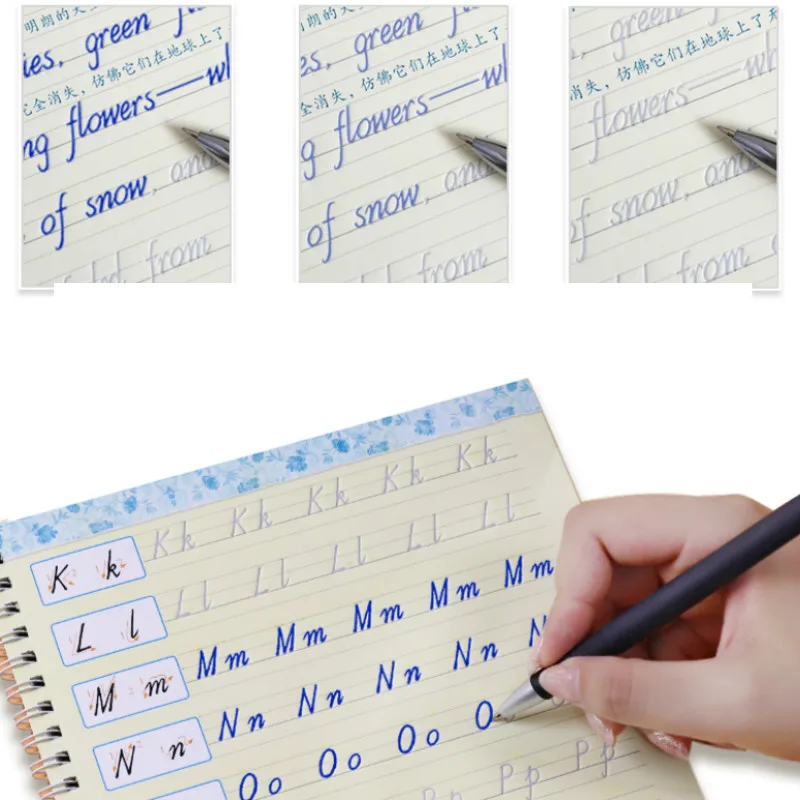 明朗的天
ies, green
全消失，仿佛它们在地球上了
ng flowers—wh
of snow, and
from
明朗的天
es, green
全消失，仿佛它们在地球上了
g flowers—wh
of snow, and
from
green
消失，仿佛它们在地球上了
flowers—wh
of snow, and
from
K k Kk Kk Kk Kk Kk
L l Ll Ll Ll Ll Ll
M m Mm Mm Mm Mm Mm
N n Nn Nn Nn Nn N
Oo Oo Oo O
Pp Pp